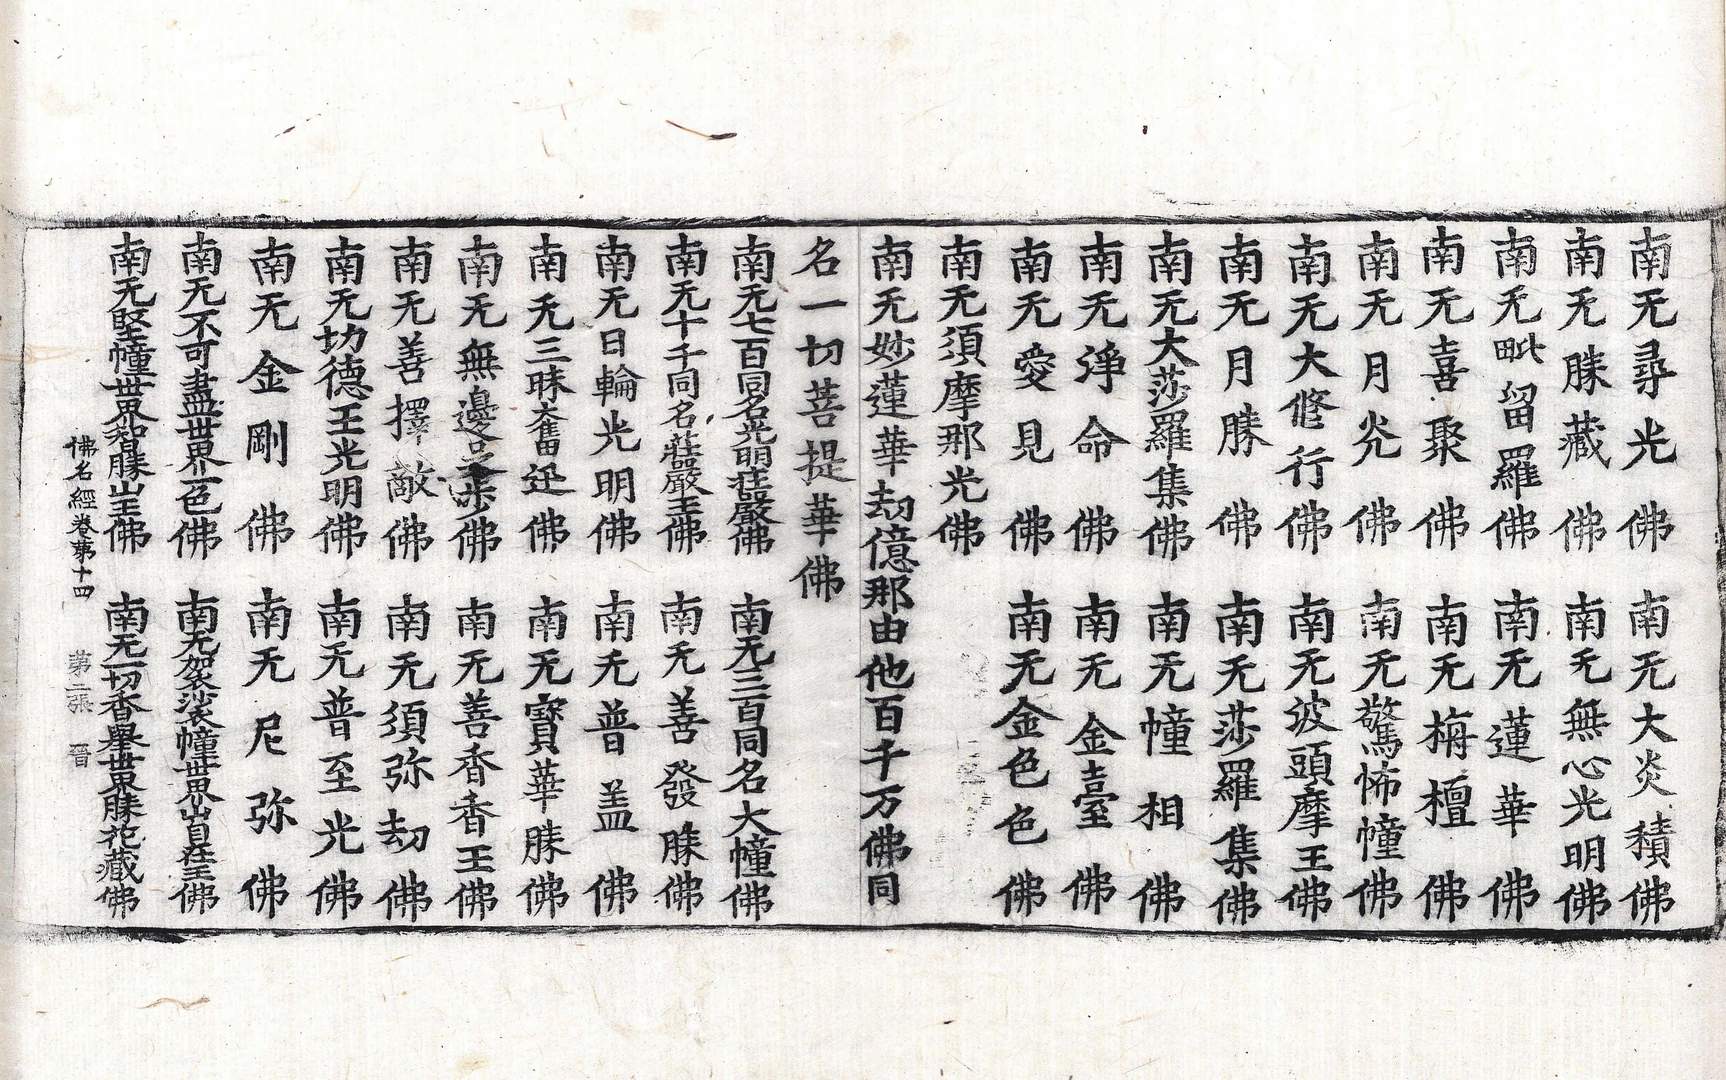 南无尋光佛　南无大炎積佛
南无勝藏佛　南无無心光明佛
南无毗留羅佛　南无蓮華佛
南无喜聚佛　南无栴檀佛
南无月光佛　南无驚怖幢佛
南无大修行佛　南无波頭摩王佛
南无月勝佛　南无莎羅集佛
南无大莎羅集佛　南无幢相佛
南无淨命佛　南无金臺佛
南无愛見佛　南无金色色佛
南无須摩那光佛
南无妙蓮華劫億那由他百千万佛同
名一切菩提華佛
南无七百同名光明莊嚴佛　南无三百同名大幢佛
南无十千同名莊嚴王佛　南无善發勝佛
南无日輪光明佛　南无普盖佛
南无三昧奮迅佛　南无寶華勝佛
南无無邊足步佛　南无善香香王佛
南无善擇敵佛　南无須弥劫佛
南无功德王光明佛　南无普至光佛
南无金剛佛　南无尼弥佛
南无不可盡世界一色佛　南无袈裟幢世界山自在王佛
南无堅幢世界智勝山王佛　南无一切香舉世界勝花藏佛
佛名經卷第十四　第二張　晉